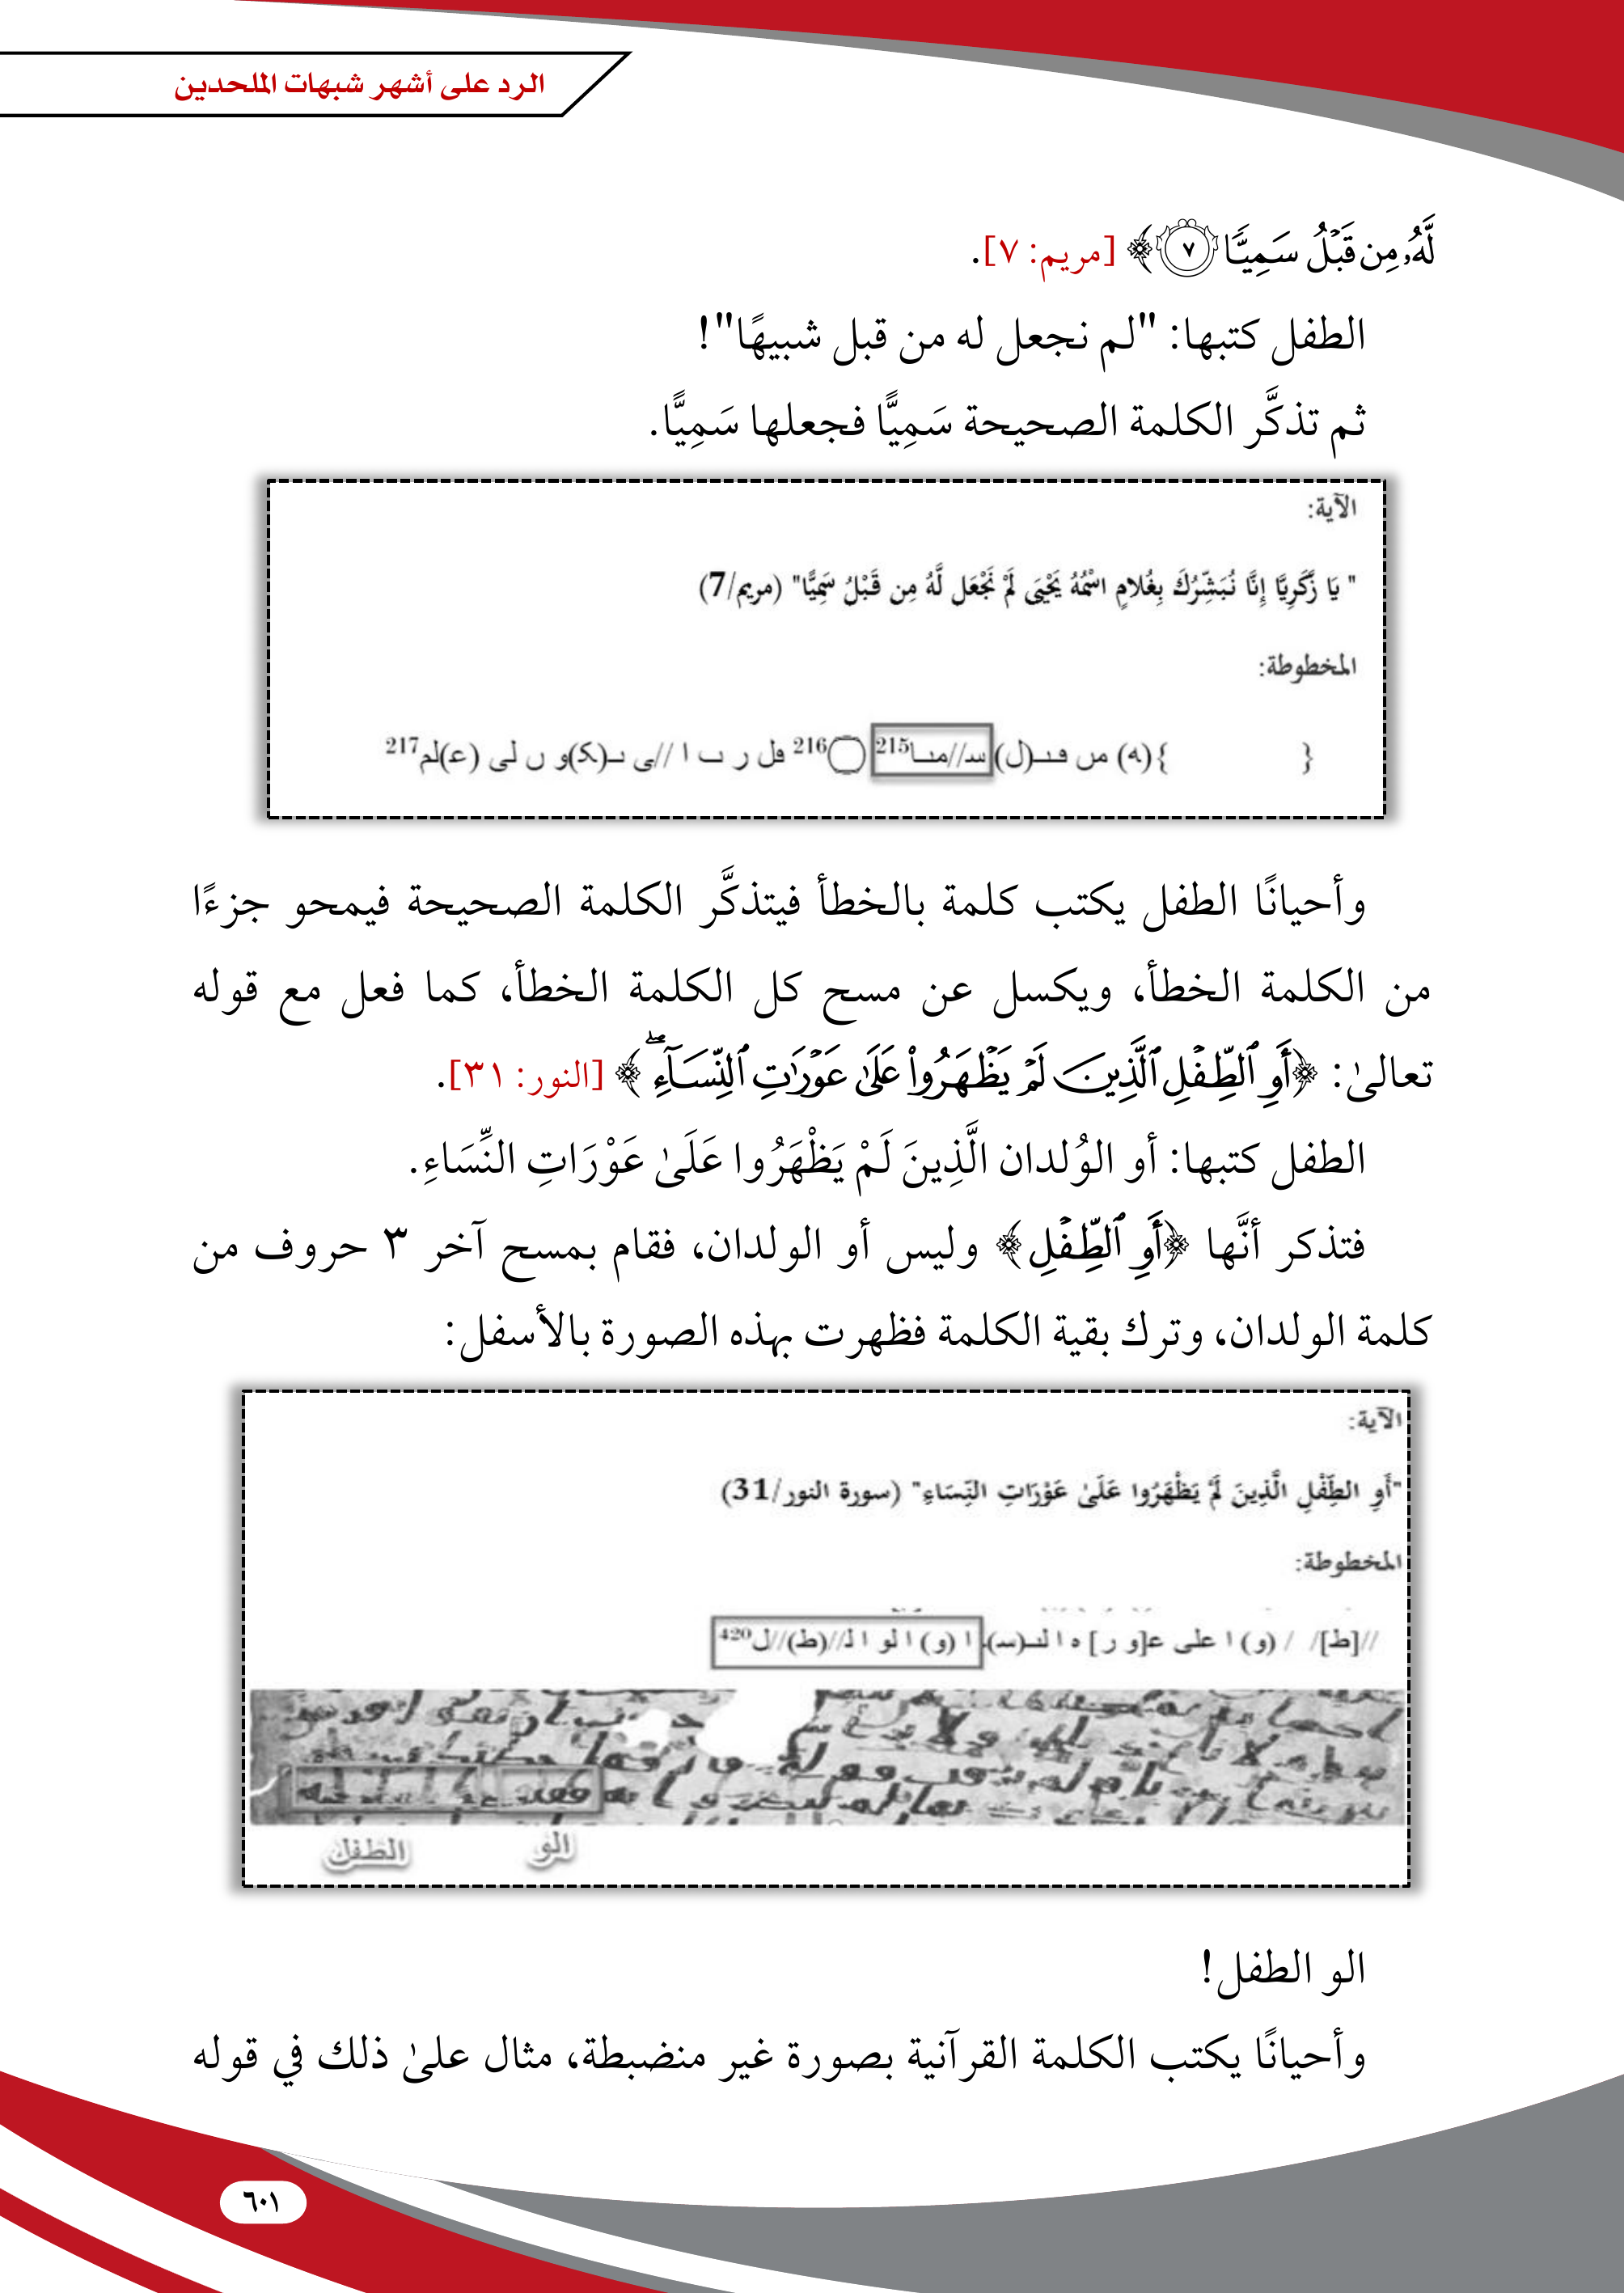 الرد على أشهر شبهات الملحدين
لَّهُۥ مِن قَبۡلُ سَمِيّٗا ٧﴾ [مريم: ٧].
الطفل كتبها: "لم نجعل له من قبل شبيهًا"!
ثم تذكَّر الكلمة الصحيحة سَمِيًّا فجعلها سَمِيًّا.
الآية:
" يَا زَكَرِيَّا إِنَّا نُبَشِّرُكَ بِغُلامٍ اسْمُهُ يَحْيَى لَمْ نَجْعَل لَّهُ مِن قَبْلُ سَمِيًّا" (مريم/7)
المخطوطة:
{ }(ه) من فىـ(ل) سـ//مىـا215 216 فل ر ب ا //ى ىـ(كـ)و ں لى (ع)لم217
وأحيانًا الطفل يكتب كلمة بالخطأ فيتذكَّر الكلمة الصحيحة فيمحو جزءًا
من الكلمة الخطأ، ويكسل عن مسح كل الكلمة الخطأ، كما فعل مع قوله
تعالىٰ: ﴿أَوِ ٱلطِّفۡلِ ٱلَّذِينَ لَمۡ يَظۡهَرُواْ عَلَىٰ عَوۡرَٰتِ ٱلنِّسَآءِۖ﴾ [النور: ٣١].
الطفل كتبها: أو الوُلدان الَّذِينَ لَمْ يَظْهَرُوا عَلَىٰ عَوْرَاتِ النِّسَاءِ.
فتذكر أنَّها ﴿أَوِ ٱلطِّفۡلِ﴾ وليس أو الولدان، فقام بمسح آخر ٣ حروف من
كلمة الولدان، وترك بقية الكلمة فظهرت بهذه الصورة بالأسفل:
الآية:
"أَوِ الطِّفْلِ الَّذِينَ لَمْ يَظْهَرُوا عَلَىٰ عَوْرَاتِ النِّسَاءِ" (سورة النور/31)
المخطوطة:
//[ط]/ / (و) ا على عـ[و ر] ه ا لنسـ(سـ)، ا (و) ا لو ا لـ//(ط)//ل420
الو الطفل
الو الطفل!
وأحيانًا يكتب الكلمة القرآنية بصورة غير منضبطة، مثال علىٰ ذلك في قوله
٦٠١